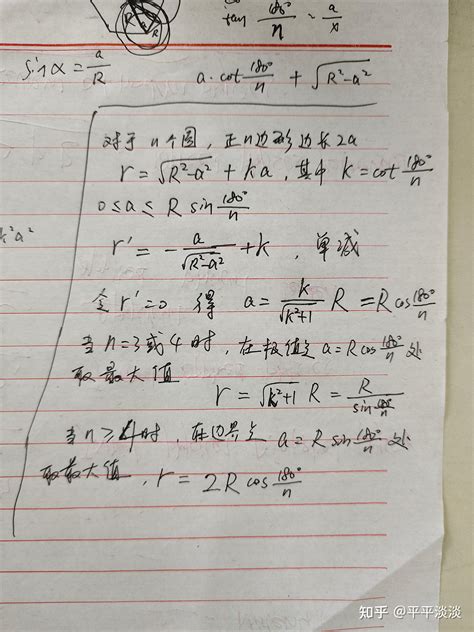 tan 180°/n = a/x
sinα = a/R
a·cot 180°/n + √(R²-a²)
对于n个圆，正n边形边长2a
r = √(R²-a²) + ka，其中 k = cot 180°/n
0 ≤ a ≤ R sin 180°/n
r' = - a/√(R²-a²) + k，单减
k²a²
令 r'=0 得 a = k/√(k²+1) R = R cos 180°/n
当 n=3或4时，在极值点 a = R cos 180°/n 处
取最大值 r = √(k²+1) R = R/sin 180°/n
当 n≥4时，在边界点 a = R sin 180°/n 处
取最大值，r = 2R cos 180°/n
知乎 @平平淡淡